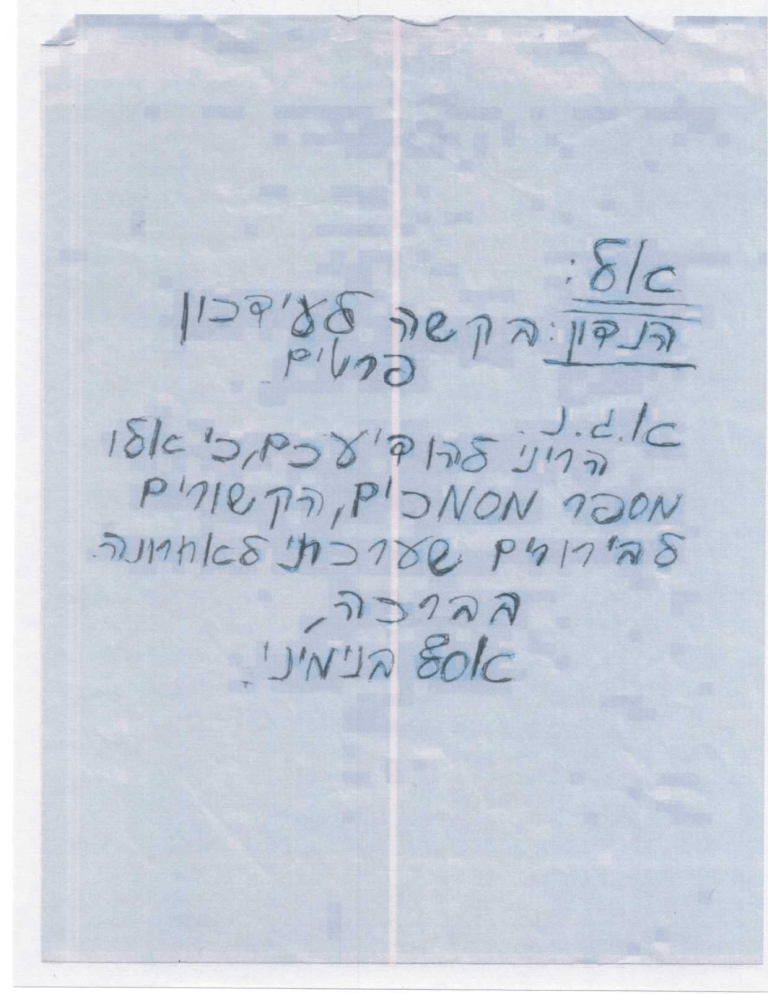 אל:
הנדון: בקשה לעידכון
פרטים
א.ג.נ.
הריני להודיעכם, כי אלו
מספר מסמכים, הקשורים
לבירורים שערכתי לאחרונה.
בברכה,
אסף בנימיני.